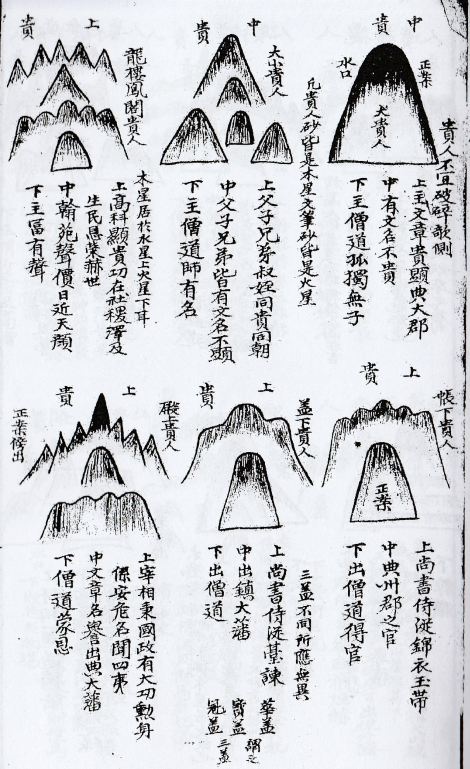 貴人不宜破碎欹側
中
貴
正案
水口
大貴人
上主文章貴顯典大郡
中有文名不貴
下主僧道孤獨無子
凡貴人砂皆是木星文筆砂皆是火星
中
貴
大小貴人
上父子兄弟叔姪同貴同朝
中父子兄弟皆有文名不顯
下主僧道師有名
上
貴
龍樓鳳閣貴人
木星居於水星之火星下耳
上高科顯貴功在社稷澤及
生民恩業赫世
中翰苑聲價日近天顏
下主區有聲
上
貴
帳下貴人
正案
上尚書侍從錦衣玉帶
中典州郡之官
下出僧道得官
上
貴
蓋下貴人
三蓋不同所應無異
華蓋
寶蓋
冠蓋
謂之
三蓋
上尚書侍從臺諫
中出鎮大藩
下出僧道
上
貴
殿上貴人
正案傍出
上宰相秉國政有大功勲身
係安危名聞四夷
中文章名譽出典大藩
下僧道蒙恩